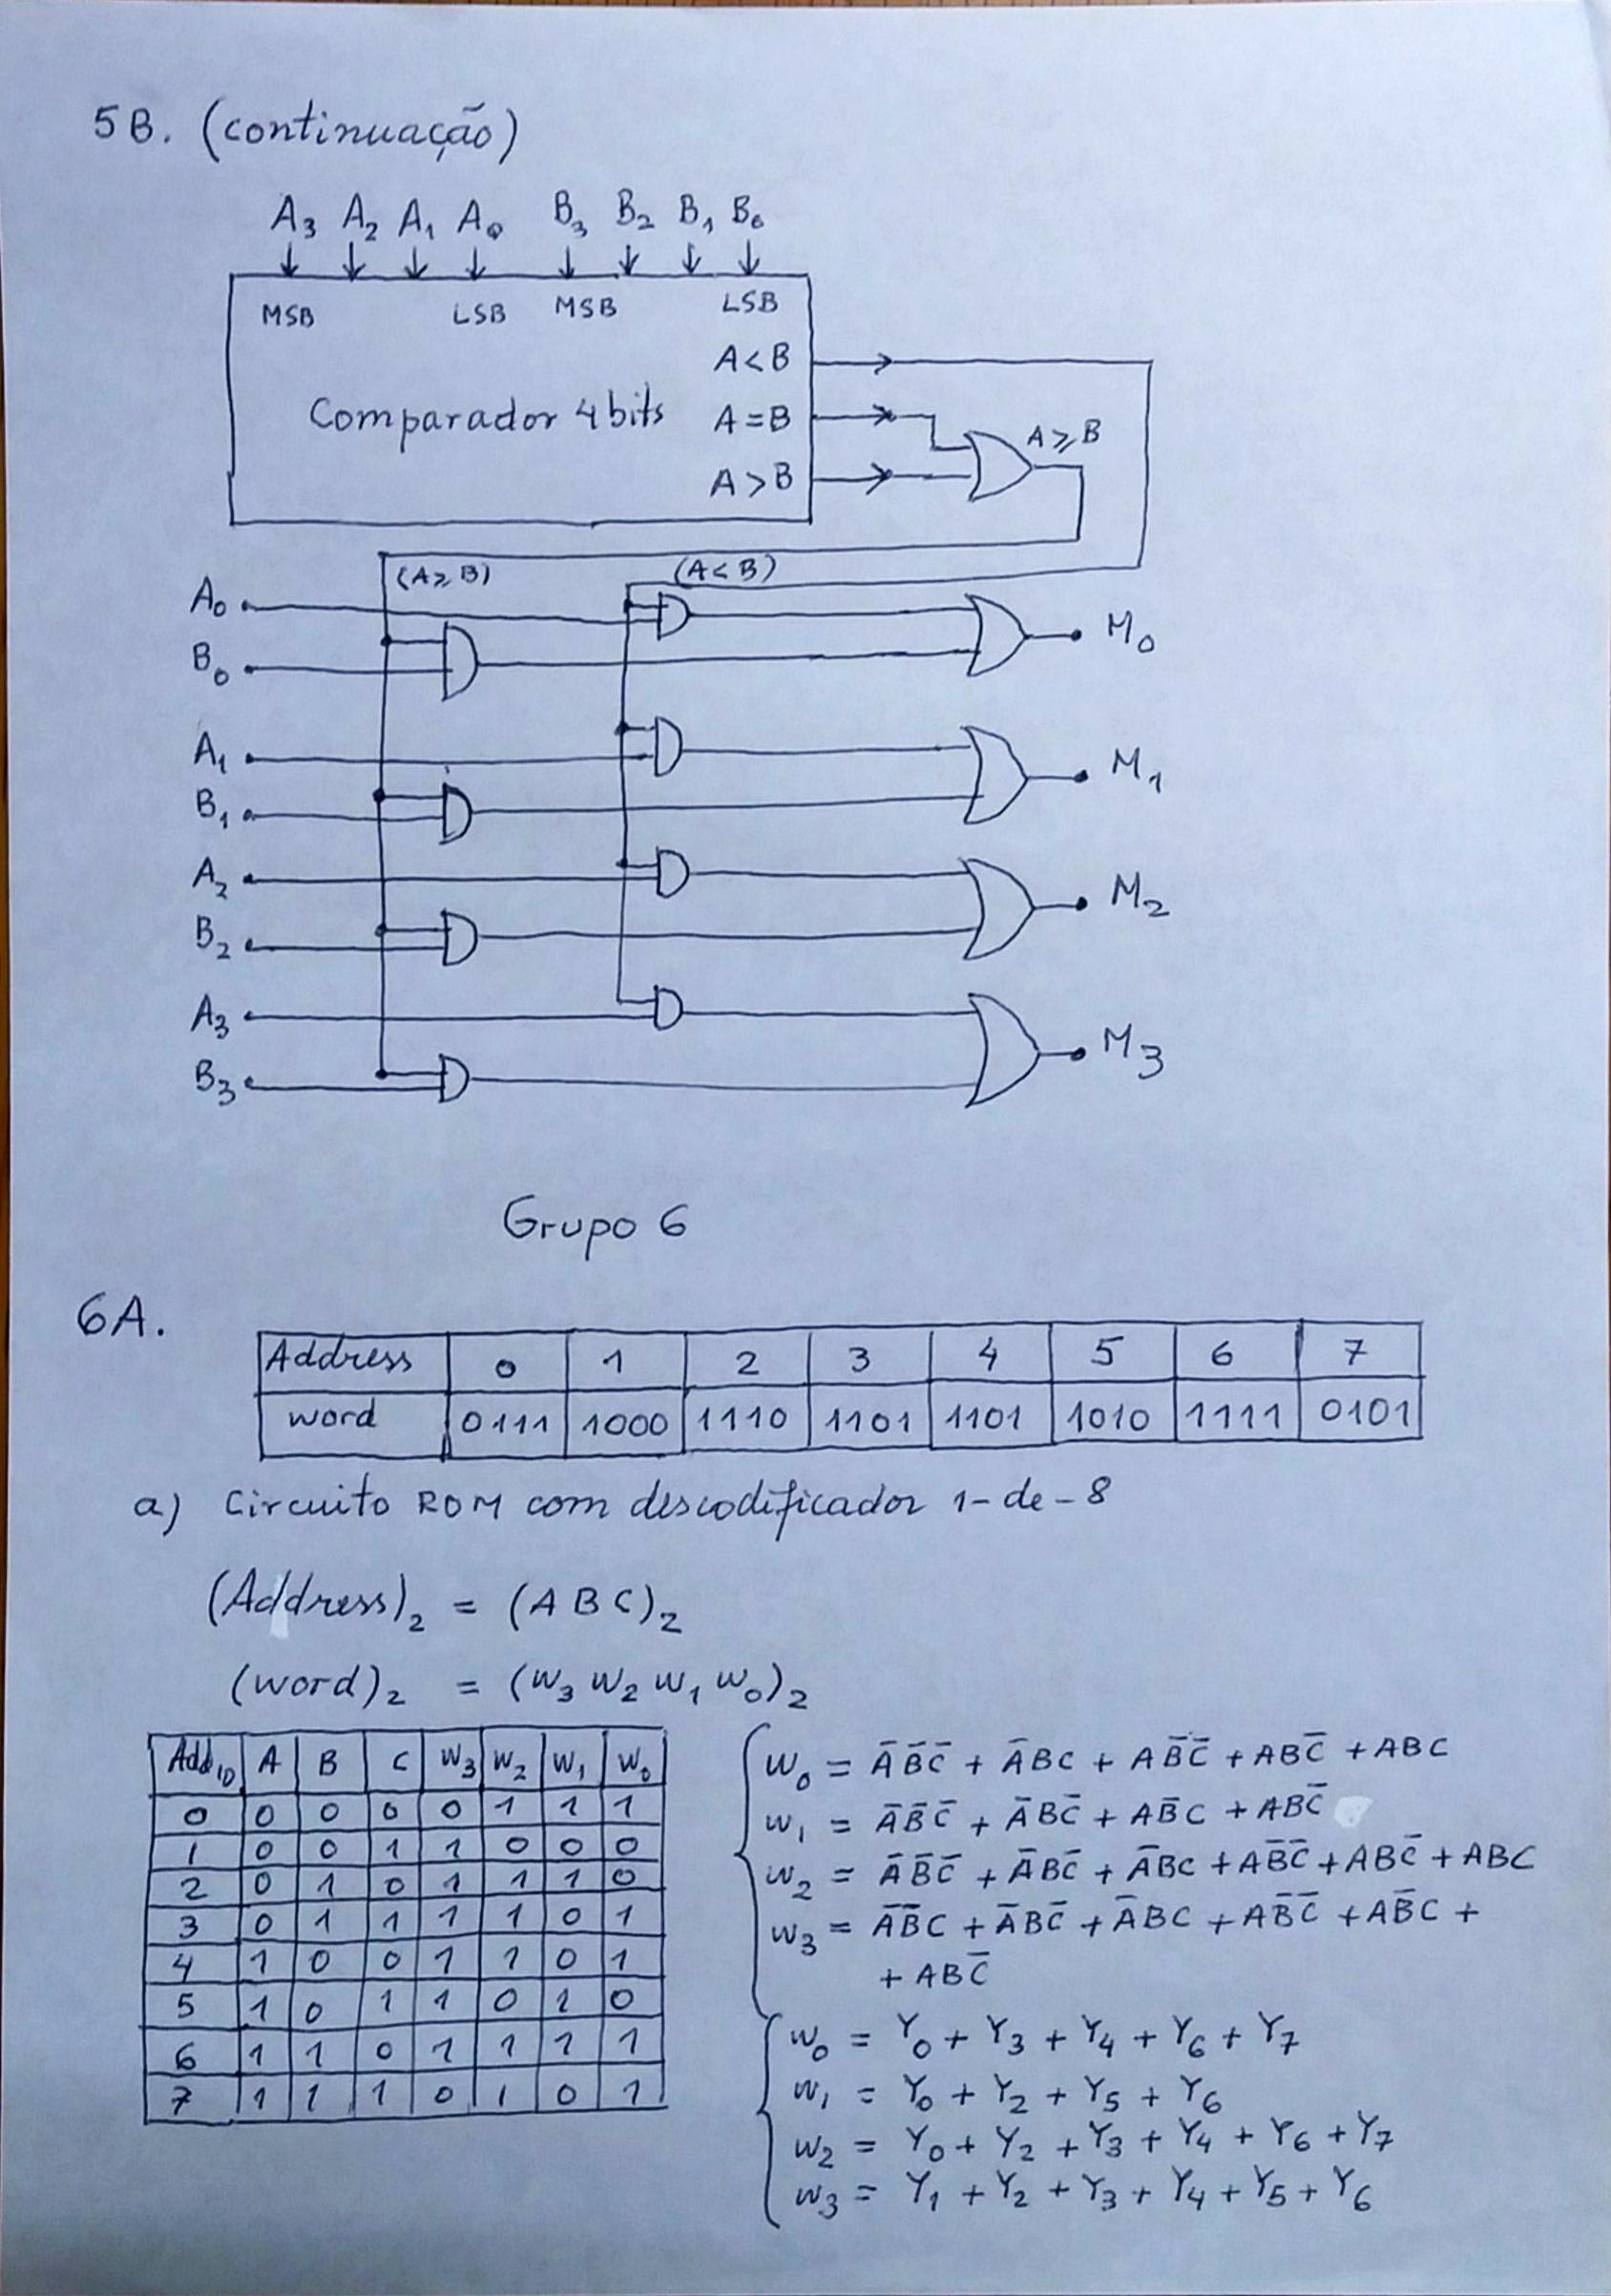 5B. (continuação)
A₃ A₂ A₁ A₀ B₃ B₂ B₁ B₀
MSB LSB MSB LSB
A<B
Comparador 4 bits A=B
A⩾B
A>B
(A⩾B) (A<B)
A₀
B₀
M₀
A₁
B₁
M₁
A₂
B₂
M₂
A₃
B₃
M₃
Grupo 6
6A.
Address 0 1 2 3 4 5 6 7
word 0111 1000 1110 1101 1101 1010 1111 0101
a) Circuito ROM com descodificador 1-de-8
(Address)₂ = (A B C)₂
(word)₂ = (w₃ w₂ w₁ w₀)₂
Add₁₀ A B C w₃ w₂ w₁ w₀
0 0 0 0 0 1 1 1
1 0 0 1 1 0 0 0
2 0 1 0 1 1 1 0
3 0 1 1 1 1 0 1
4 1 0 0 1 1 0 1
5 1 0 1 1 0 1 0
6 1 1 0 1 1 1 1
7 1 1 1 0 1 0 1
w₀ = A̅ B̅ C̅ + A̅ B C + A B̅ C̅ + A B C̅ + A B C
w₁ = A̅ B̅ C̅ + A̅ B C̅ + A B̅ C + A B C̅
w₂ = A̅ B̅ C̅ + A̅ B C̅ + A̅ B C + A B̅ C̅ + A B C̅ + A B C
w₃ = A̅ B̅ C + A̅ B C̅ + A̅ B C + A B̅ C̅ + A B̅ C +
+ A B C̅
w₀ = Y₀ + Y₃ + Y₄ + Y₆ + Y₇
w₁ = Y₀ + Y₂ + Y₅ + Y₆
w₂ = Y₀ + Y₂ + Y₃ + Y₄ + Y₆ + Y₇
w₃ = Y₁ + Y₂ + Y₃ + Y₄ + Y₅ + Y₆